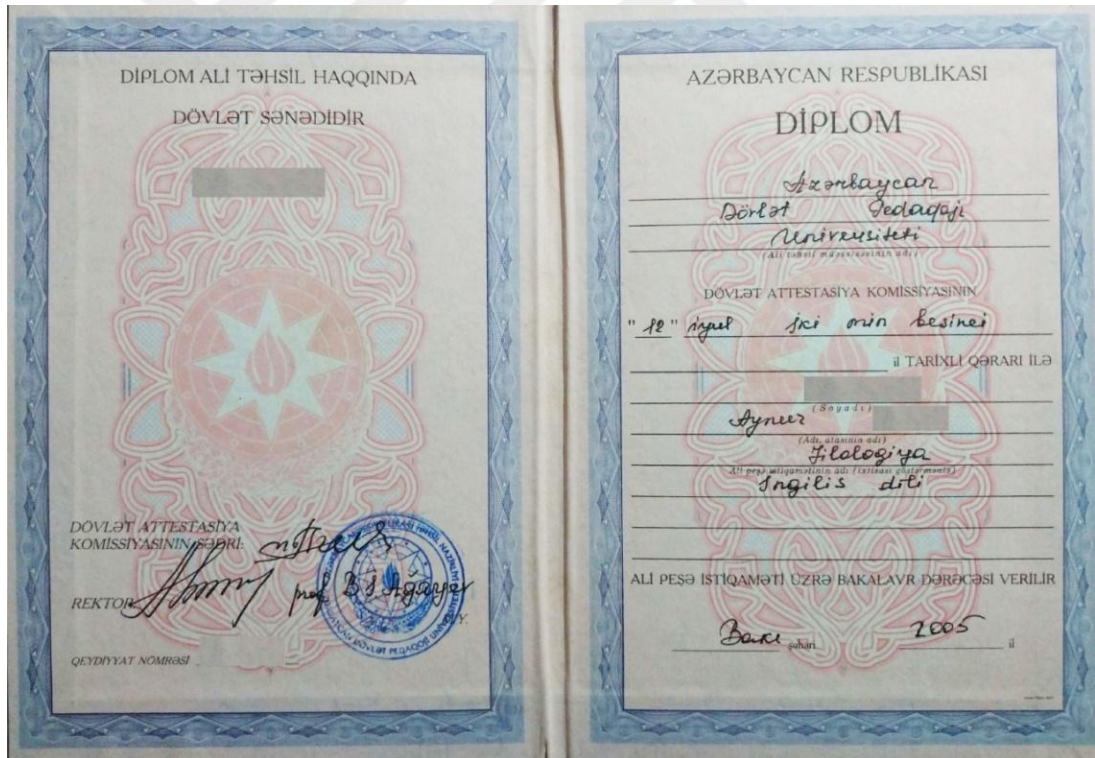 DİPLOM ALİ TƏHSİL HAQQINDA
DÖVLƏT SƏNƏDİDİR
DÖVLƏT ATTESTASİYA
KOMİSSİYASININ SƏDRİ:
prof. B S Ağayev
REKTOR
M.Y.
QEYDİYYAT NÖMRƏSİ
AZƏRBAYCAN RESPUBLİKASI
DİPLOM
Azərbaycan
Dövlət Pedaqoji
Universiteti
(Ali təhsil müəssisəsinin adı)
DÖVLƏT ATTESTASİYA KOMİSSİYASININ
"12" iyul iki min beşinci
il TARİXLİ QƏRARI İLƏ
(Soyadı)
Aynur
(Adı, atasının adı)
Filologiya
Ali peşə istiqamətinin adı (ixtisası göstərməklə)
İngilis dili
ALİ PEŞƏ İSTİQAMƏTİ ÜZRƏ BAKALAVR DƏRƏCƏSİ VERİLİR
Bakı şəhəri 2005 il